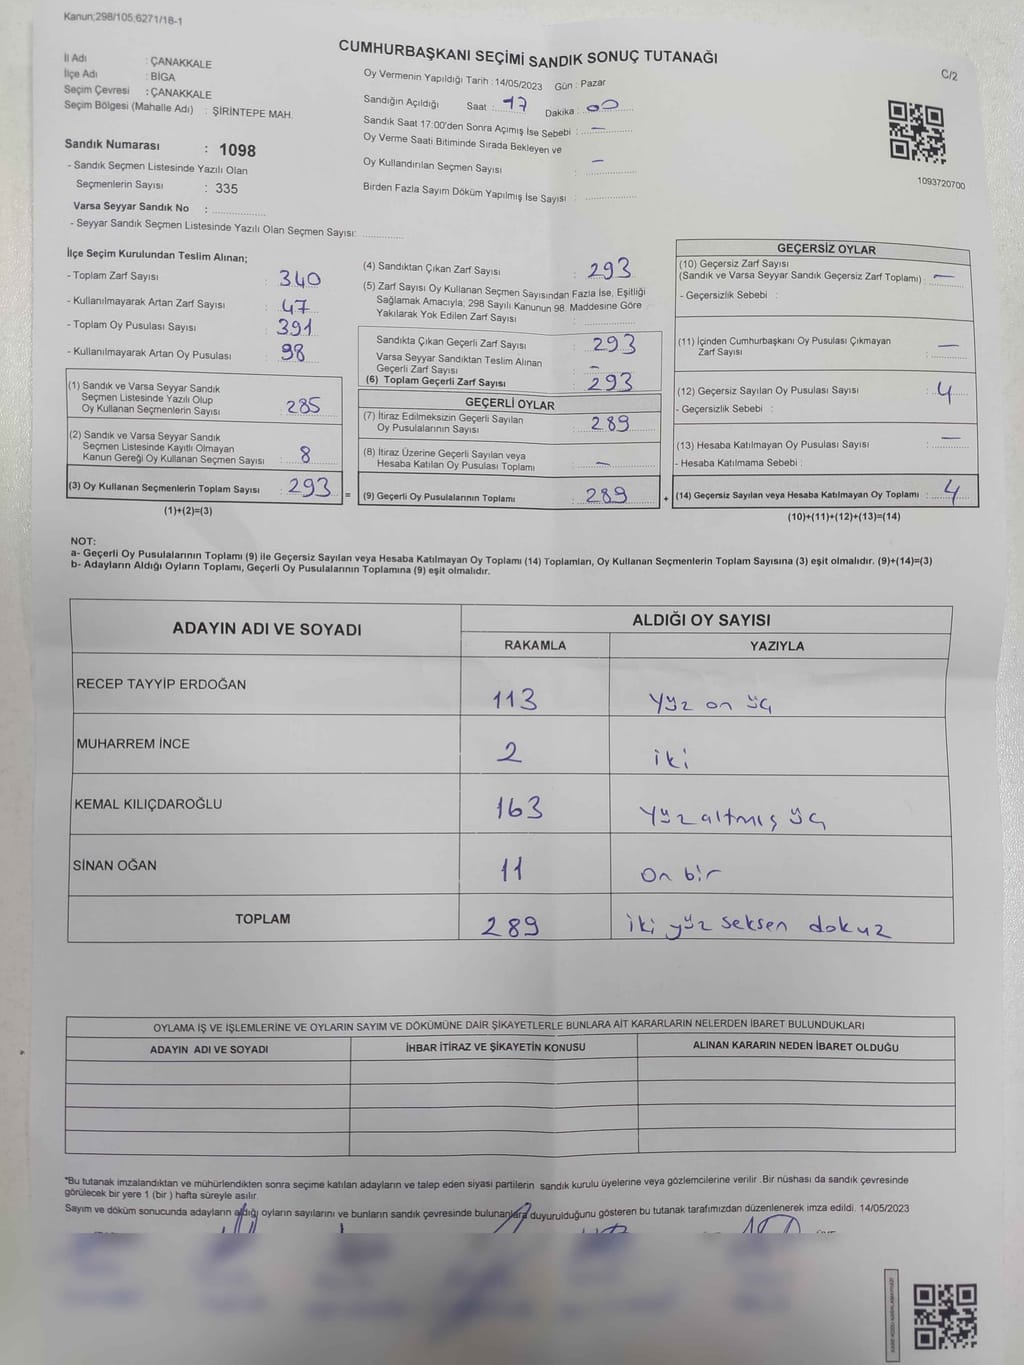 Kanun;298/105;6271/18-1
CUMHURBAŞKANI SEÇİMİ SANDIK SONUÇ TUTANAĞI
C/2
İl Adı : ÇANAKKALE
İlçe Adı : BİGA
Seçim Çevresi : ÇANAKKALE
Seçim Bölgesi (Mahalle Adı) : ŞİRİNTEPE MAH.
Sandık Numarası : 1098
- Sandık Seçmen Listesinde Yazılı Olan
Seçmenlerin Sayısı : 335
Varsa Seyyar Sandık No :
- Seyyar Sandık Seçmen Listesinde Yazılı Olan Seçmen Sayısı:
Oy Vermenin Yapıldığı Tarih : 14/05/2023 Gün : Pazar
Sandığın Açıldığı Saat : 17 Dakika : 00
Sandık Saat 17:00'den Sonra Açımış İse Sebebi : —
Oy Verme Saati Bitiminde Sırada Bekleyen ve
Oy Kullandırılan Seçmen Sayısı : —
Birden Fazla Sayım Döküm Yapılmış İse Sayısı :
1093720700
İlçe Seçim Kurulundan Teslim Alınan;
- Toplam Zarf Sayısı : 340
- Kullanılmayarak Artan Zarf Sayısı : 47
- Toplam Oy Pusulası Sayısı : 391
- Kullanılmayarak Artan Oy Pusulası : 98
(1) Sandık ve Varsa Seyyar Sandık
Seçmen Listesinde Yazılı Olup
Oy Kullanan Seçmenlerin Sayısı : 285
(2) Sandık ve Varsa Seyyar Sandık
Seçmen Listesinde Kayıtlı Olmayan
Kanun Gereği Oy Kullanan Seçmen Sayısı : 8
(3) Oy Kullanan Seçmenlerin Toplam Sayısı : 293 =
(1)+(2)=(3)
(4) Sandıktan Çıkan Zarf Sayısı : 293
(5) Zarf Sayısı Oy Kullanan Seçmen Sayısından Fazla İse, Eşitliği
Sağlamak Amacıyla, 298 Sayılı Kanunun 98. Maddesine Göre
Yakılarak Yok Edilen Zarf Sayısı :
Sandıkta Çıkan Geçerli Zarf Sayısı : 293
Varsa Seyyar Sandıktan Teslim Alınan
Geçerli Zarf Sayısı : —
(6) Toplam Geçerli Zarf Sayısı : 293
GEÇERLİ OYLAR
(7) İtiraz Edilmeksizin Geçerli Sayılan
Oy Pusulalarının Sayısı : 289
(8) İtiraz Üzerine Geçerli Sayılan veya
Hesaba Katılan Oy Pusulası Toplamı : —
(9) Geçerli Oy Pusulalarının Toplamı : 289 +
GEÇERSİZ OYLAR
(10) Geçersiz Zarf Sayısı
(Sandık ve Varsa Seyyar Sandık Geçersiz Zarf Toplamı) : —
- Geçersizlik Sebebi :
(11) İçinden Cumhurbaşkanı Oy Pusulası Çıkmayan
Zarf Sayısı : —
(12) Geçersiz Sayılan Oy Pusulası Sayısı : 4
- Geçersizlik Sebebi :
(13) Hesaba Katılmayan Oy Pusulası Sayısı : —
- Hesaba Katılmama Sebebi :
(14) Geçersiz Sayılan veya Hesaba Katılmayan Oy Toplamı : 4
(10)+(11)+(12)+(13)=(14)
NOT:
a- Geçerli Oy Pusulalarının Toplamı (9) ile Geçersiz Sayılan veya Hesaba Katılmayan Oy Toplamı (14) Toplamları, Oy Kullanan Seçmenlerin Toplam Sayısına (3) eşit olmalıdır. (9)+(14)=(3)
b- Adayların Aldığı Oyların Toplamı, Geçerli Oy Pusulalarının Toplamına (9) eşit olmalıdır.
ADAYIN ADI VE SOYADI ALDIĞI OY SAYISI
RAKAMLA YAZIYLA
RECEP TAYYİP ERDOĞAN 113 Yüz on üç
MUHARREM İNCE 2 iki
KEMAL KILIÇDAROĞLU 163 Yüzaltmış üç
SİNAN OĞAN 11 On bir
TOPLAM 289 iki yüz seksen dokuz
OYLAMA İŞ VE İŞLEMLERİNE VE OYLARIN SAYIM VE DÖKÜMÜNE DAİR ŞİKAYETLERLE BUNLARA AİT KARARLARIN NELERDEN İBARET BULUNDUKLARI
ADAYIN ADI VE SOYADI İHBAR İTİRAZ VE ŞİKAYETİN KONUSU ALINAN KARARIN NEDEN İBARET OLDUĞU
*Bu tutanak imzalandıktan ve mühürlendikten sonra seçime katılan adayların ve talep eden siyasi partilerin sandık kurulu üyelerine veya gözlemcilerine verilir .Bir nüshası da sandık çevresinde
görülecek bir yere 1 (bir ) hafta süreyle asılır.
Sayım ve döküm sonucunda adayların aldığı oyların sayılarını ve bunların sandık çevresinde bulunanlara duyurulduğunu gösteren bu tutanak tarafımızdan düzenlenerek imza edildi. 14/05/2023